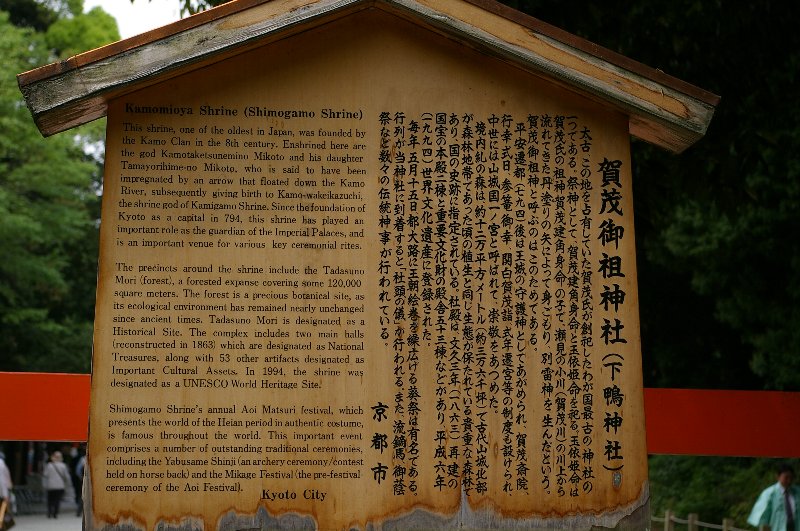 Kamomioya Shrine (Shimogamo Shrine)
This shrine, one of the oldest in Japan, was founded by
the Kamo Clan in the 8th century. Enshrined here are
the god Kamotaketsunemino Mikoto and his daughter
Tamayorihime-no Mikoto, who is said to have been
impregnated by an arrow that floated down the Kamo
River, subsequently giving birth to Kamo-wakeikazuchi,
the shrine god of Kamigamo Shrine. Since the foundation of
Kyoto as a capital in 794, this shrine has played an
important role as the guardian of the Imperial Palaces, and
is an important venue for various key ceremonial rites.
The precincts around the shrine include the Tadasuno
Mori (forest), a forested expanse covering some 120,000
square meters. The forest is a precious botanical site, as
its ecological environment has remained nearly unchanged
since ancient times. Tadasuno Mori is designated as a
Historical Site. The complex includes two main halls
(reconstructed in 1863) which are designated as National
Treasures, along with 53 other artifacts designated as
Important Cultural Assets. In 1994, the shrine was
designated as a UNESCO World Heritage Site.
Shimogamo Shrine's annual Aoi Matsuri festival, which
presents the world of the Heian period in authentic costume,
is famous throughout the world. This important event
comprises a number of outstanding traditional ceremonies,
including the Yabusame Shinji (an archery ceremony/contest
held on horse back) and the Mikage Festival (the pre-festival
ceremony of the Aoi Festival).
Kyoto City
賀茂御祖神社(下鴨神社)
太古この地を占有していた賀茂氏が創祀したわが国最古の神社の
一つである。祭神として、賀茂建角身命と玉依姫命を祀る。玉依姫命は
賀茂氏の祖神賀茂建角身命の子で、瀬見の小川(賀茂川)の川上から
流れてきた丹塗りの矢によって身ごもり、別雷神を生んだという。
賀茂御祖神社と呼ぶのはこのためである。
平安遷都(七九四)後は王城の守護神としてあがめられ、賀茂斎院、
行幸式日、参篭御幸、関白賀茂詣、式年遷宮等の制度も設けられ
中世には山城国一ノ宮と呼ばれて、崇敬をあつめた。
境内糺の森は、約十二万平方メートル(約三万六千坪)で古代山城北部
が森林地帯であった頃の植生と同じ生態が保たれている貴重な森林で
あり、国の史跡に指定されている。社殿は、文久三年(一八六三)再建の
国宝の本殿二棟と重要文化財の殿舎五十三棟などがあり、平成六年
(一九九四)世界文化遺産に登録された。
毎年五月十五日都大路に王朝絵巻を繰広げる葵祭は有名である。
行列が当神社に到着すると、社頭の儀が行われる。また、流鏑馬、御蔭
祭など数々の伝統神事が行われている。
京都市